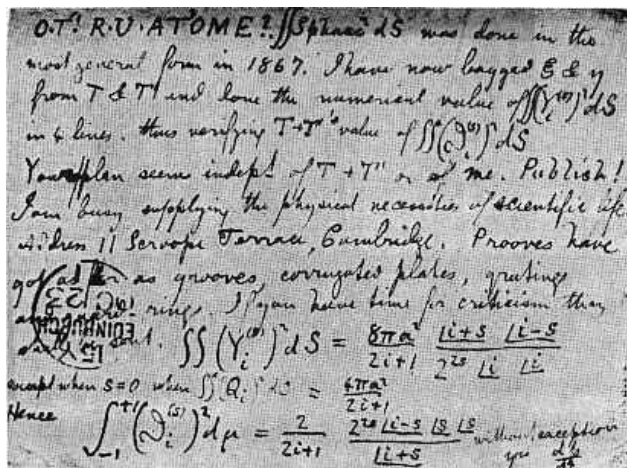 O.T! R.U. AT'OME? ∬Spharc² dS was done in the
most general form in 1867. I have now bagged ξ & η
from T & T' and done the numerical value of ∬(Y_i^(s))² dS
in 4 lines. thus verifying T+T''s value of ∬(ϑ_i^(s))² dS
Your plan seems indept of T+T' or of me. Publish!
I am busy supplying the physical necessities of scientific life
Address 11 Scroope Terrace, Cambridge. Prooves have
got as far as grooves, corrugated plates, gratings
rings. If you have time for criticism they
sent.
EDINBURGH
∬(Y_i^(s))² dS = 8πa²/(2i+1) · (⌊i+s ⌊i-s)/(2^{2s} ⌊i ⌊i)
except when s=0 when ∬(Q_i)² dS = 4πa²/(2i+1)
Hence
∫_{-1}^{+1} (ϑ_i^(s))² dμ = 2/(2i+1) · (2^{2s} ⌊i-s ⌊s ⌊s)/(⌊i+s) without exception